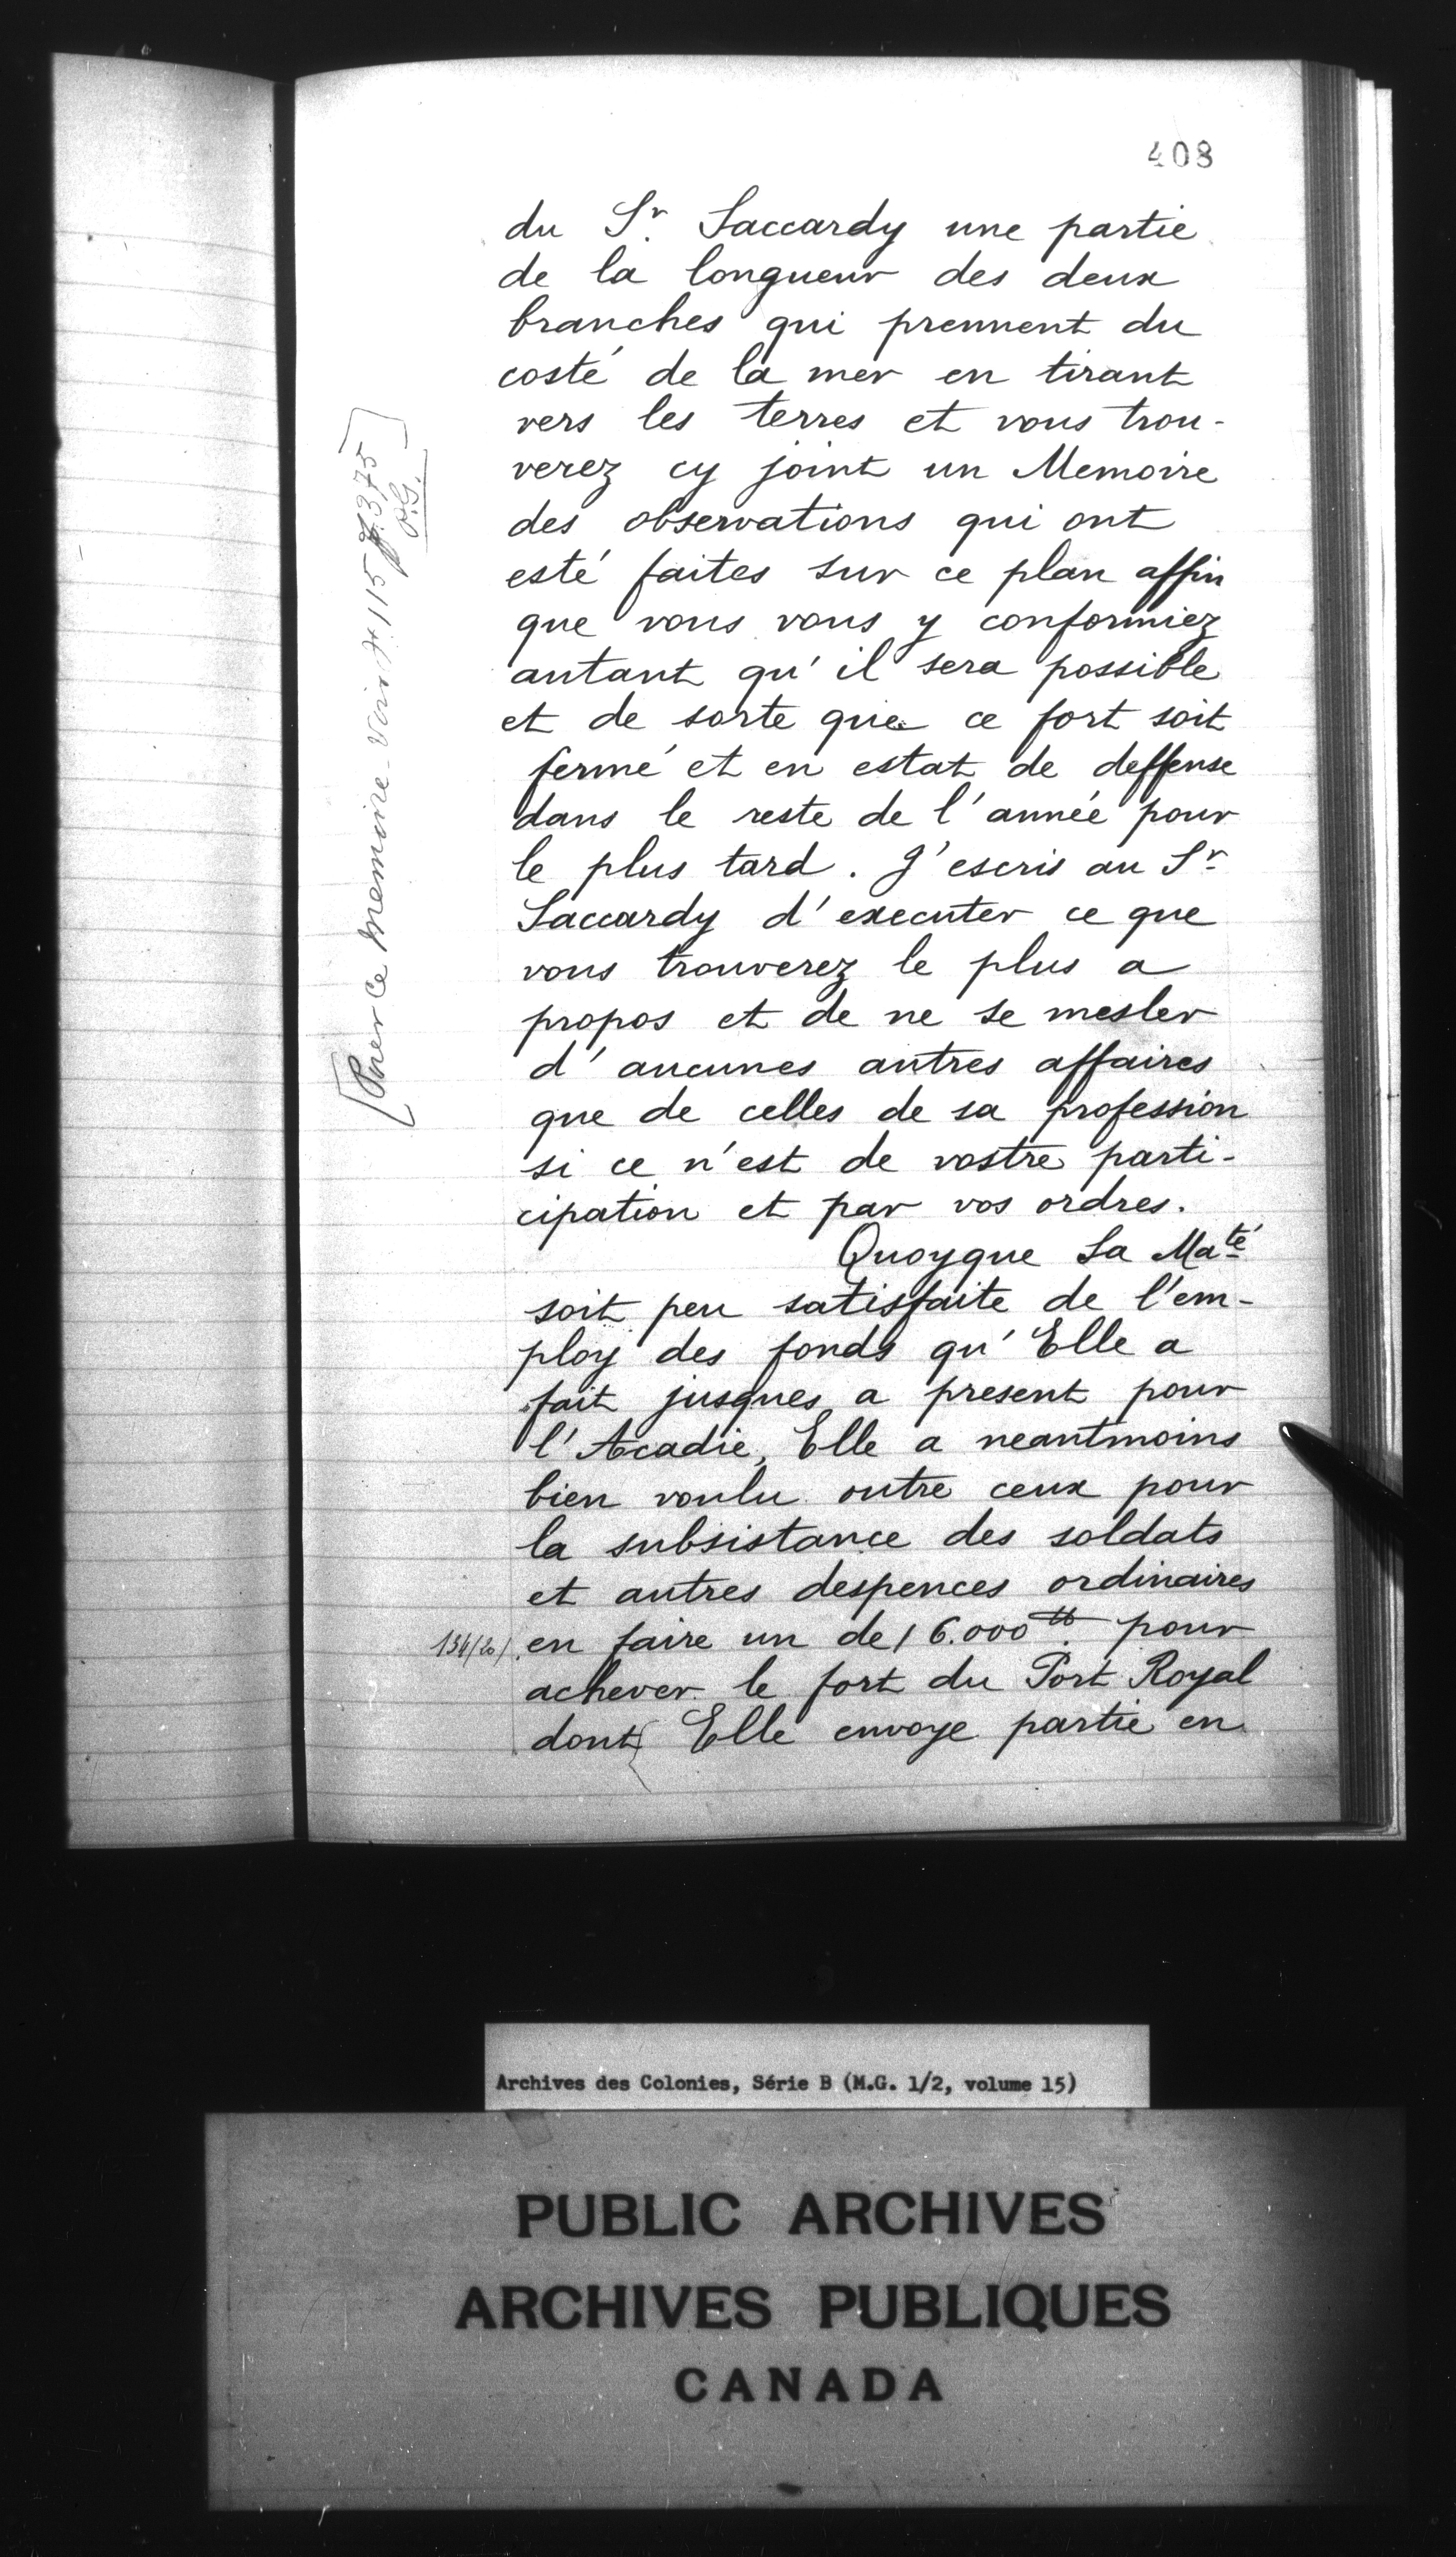 408
du Sr. Saccardy une partie
de la longueur des deux
branches qui prennent du
costé de la mer en tirant
vers les terres et vous trou-
verez cy joint un Memoire
des observations qui ont
esté faites sur ce plan affin
que vous vous y conformiez
autant qu'il sera possible
et de sorte que ce fort soit
fermé et en estat de deffense
dans le reste de l'année pour
le plus tard. J'escris au Sr
Saccardy d'executer ce que
vous trouverez le plus a
propos et de ne se mesler
d'aucunes autres affaires
que de celles de sa profession
si ce n'est de vostre parti-
cipation et par vos ordres.
Quoyque Sa Maté
soit peu satisfaite de l'em-
ploy des fonds qu'Elle a
fait jusques a present pour
l'Acadie, Elle a neantmoins
bien voulu outre ceux pour
la subsistance des soldats
et autres despences ordinaires
en faire un de 16.000 tt pour
achever le fort du Port Royal
dont Elle envoye partie en
[Pour ce memoire - voir 115 375
P.G.]
134/20/
Archives des Colonies, Série B (M.G. 1/2, volume 15)
PUBLIC ARCHIVES
ARCHIVES PUBLIQUES
CANADA